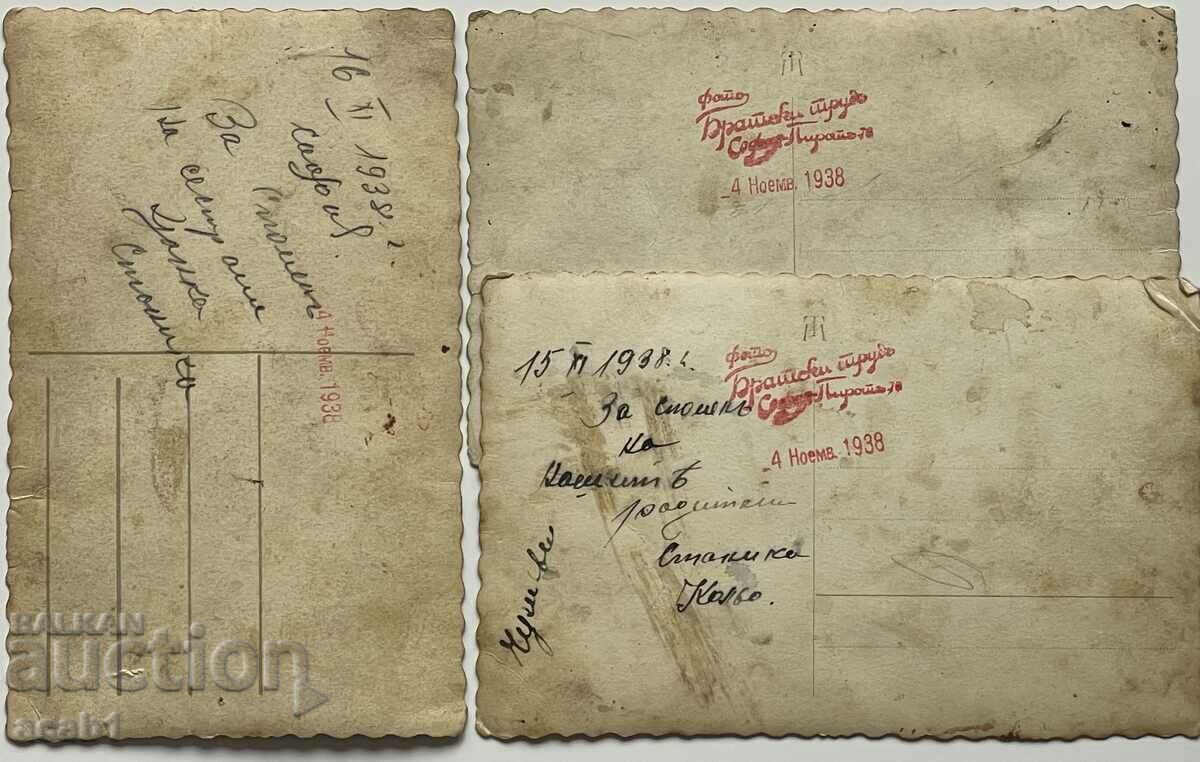 16 XI 1938 г.
София
За спомень
на сестр ми
Цанка
Станика
4 Ноемв. 1938
Фото
Братски трудъ
София-Пиротъ-78
4 Ноемв. 1938
15 XI 1938 г.
За спомень
на
нашитѣ
родители
Станика
Кольо.
Фото
Братски трудъ
София-Пиротъ-78
4 Ноемв. 1938
BALKAN
auction
acab1